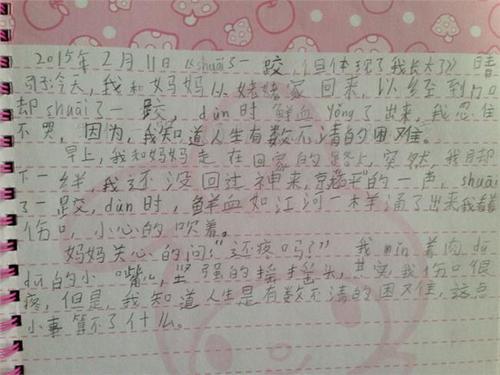 2015年2月11日《shuāi了一 跤，但体现了我长大了》 晴
今天，我和妈妈从姥姥家 回来，以经到门口
却shuāi了一 跤， dùn时 鲜血yǒng了出来，我忍住
不哭，因为，我知道人生有数不清的困难。
早上，我和妈妈走 在回家的路上，突然，我自却
下一绊，我还没回过神来，"的一声，shuāi
了一跤，dùn时，鲜血如江河一样涌了出来我看着
伤口，小心的吹着。
妈妈关心的问："还疼吗？" 我mǐn着肉dū
dū的小"嘴"，坚强的摇摇头，其实，我伤口很
疼，但是，我知道人生是有数不清的困难，这点
小事算不了什么。